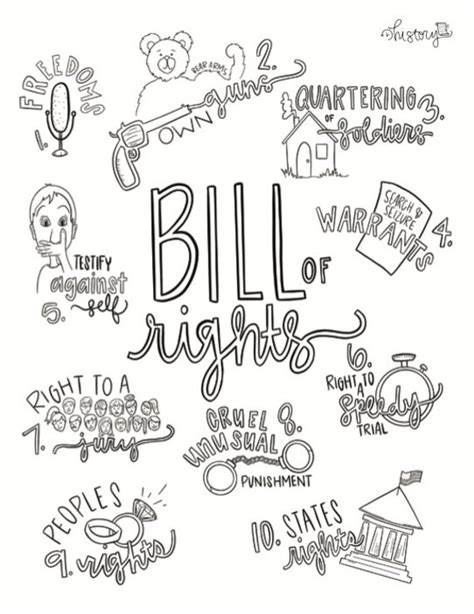 history
FREEDOMS
1.
BEAR ARMS
2.
OWN guns
QUARTERING
OF
soldiers
3.
SEARCH &
SEIZURE
WARRANTS
4.
TESTIFY
against
self
5.
BILL OF
rights
6.
RIGHT TO A
speedy
TRIAL
RIGHT TO A
7. jury
CRUEL 8.
UNUSUAL
PUNISHMENT
PEOPLES
9. rights
10. STATES
rights